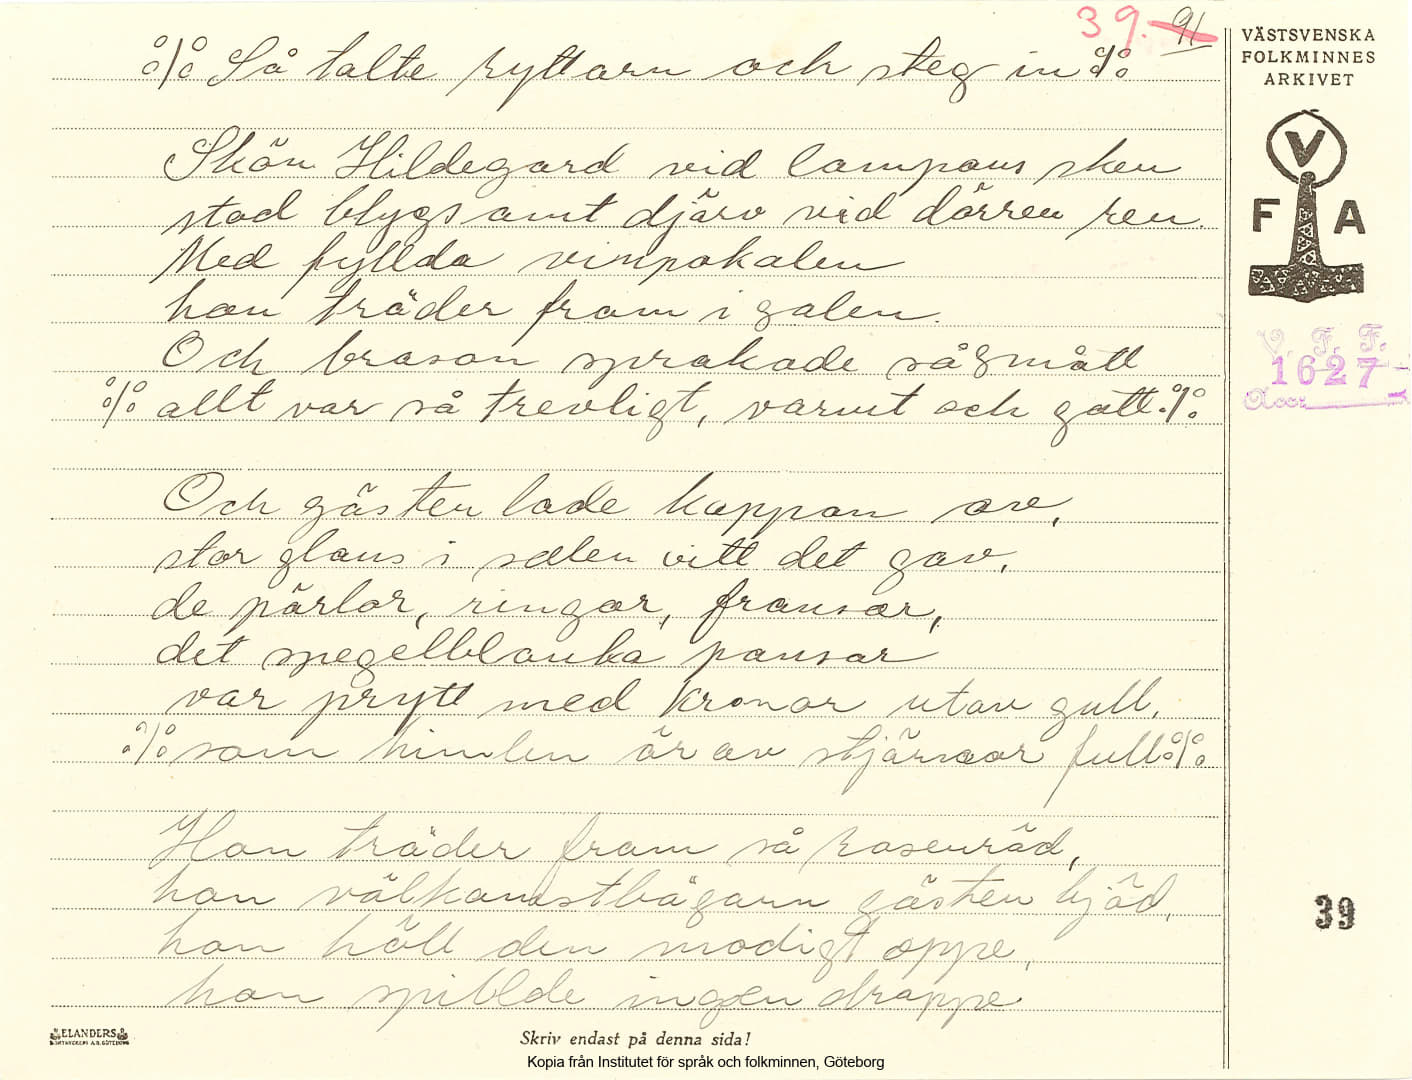 39. 91
VÄSTSVENSKA
FOLKMINNES
ARKIVET
V
F A
V. F. F.
1627
Acc:
%/% Så talte ryttarn och steg in %/%
Skön Hildegard vid lampans sken
stod blygsamt djärv vid dörren ren.
Med fyllda vinpokalen
han träder fram i salen.
Och brasan sprakade så smått
%/% allt var så trevligt, varmt och gott %/%
Och gästen lade kappan av,
stor glans i salen vitt det gav,
de pärlor, ringar, fransar,
det spegelblanka pansar
var prytt med kronor utav gull,
%/% som himlen är av stjärnor full %/%
Hon träder fram så rosenröd,
hon välkomstbägarn gästen bjöd,
hon höll den modigt oppe,
hon spillde ingen droppe
39
ELANDERS
Skriv endast på denna sida!
Kopia från Institutet för språk och folkminnen, Göteborg